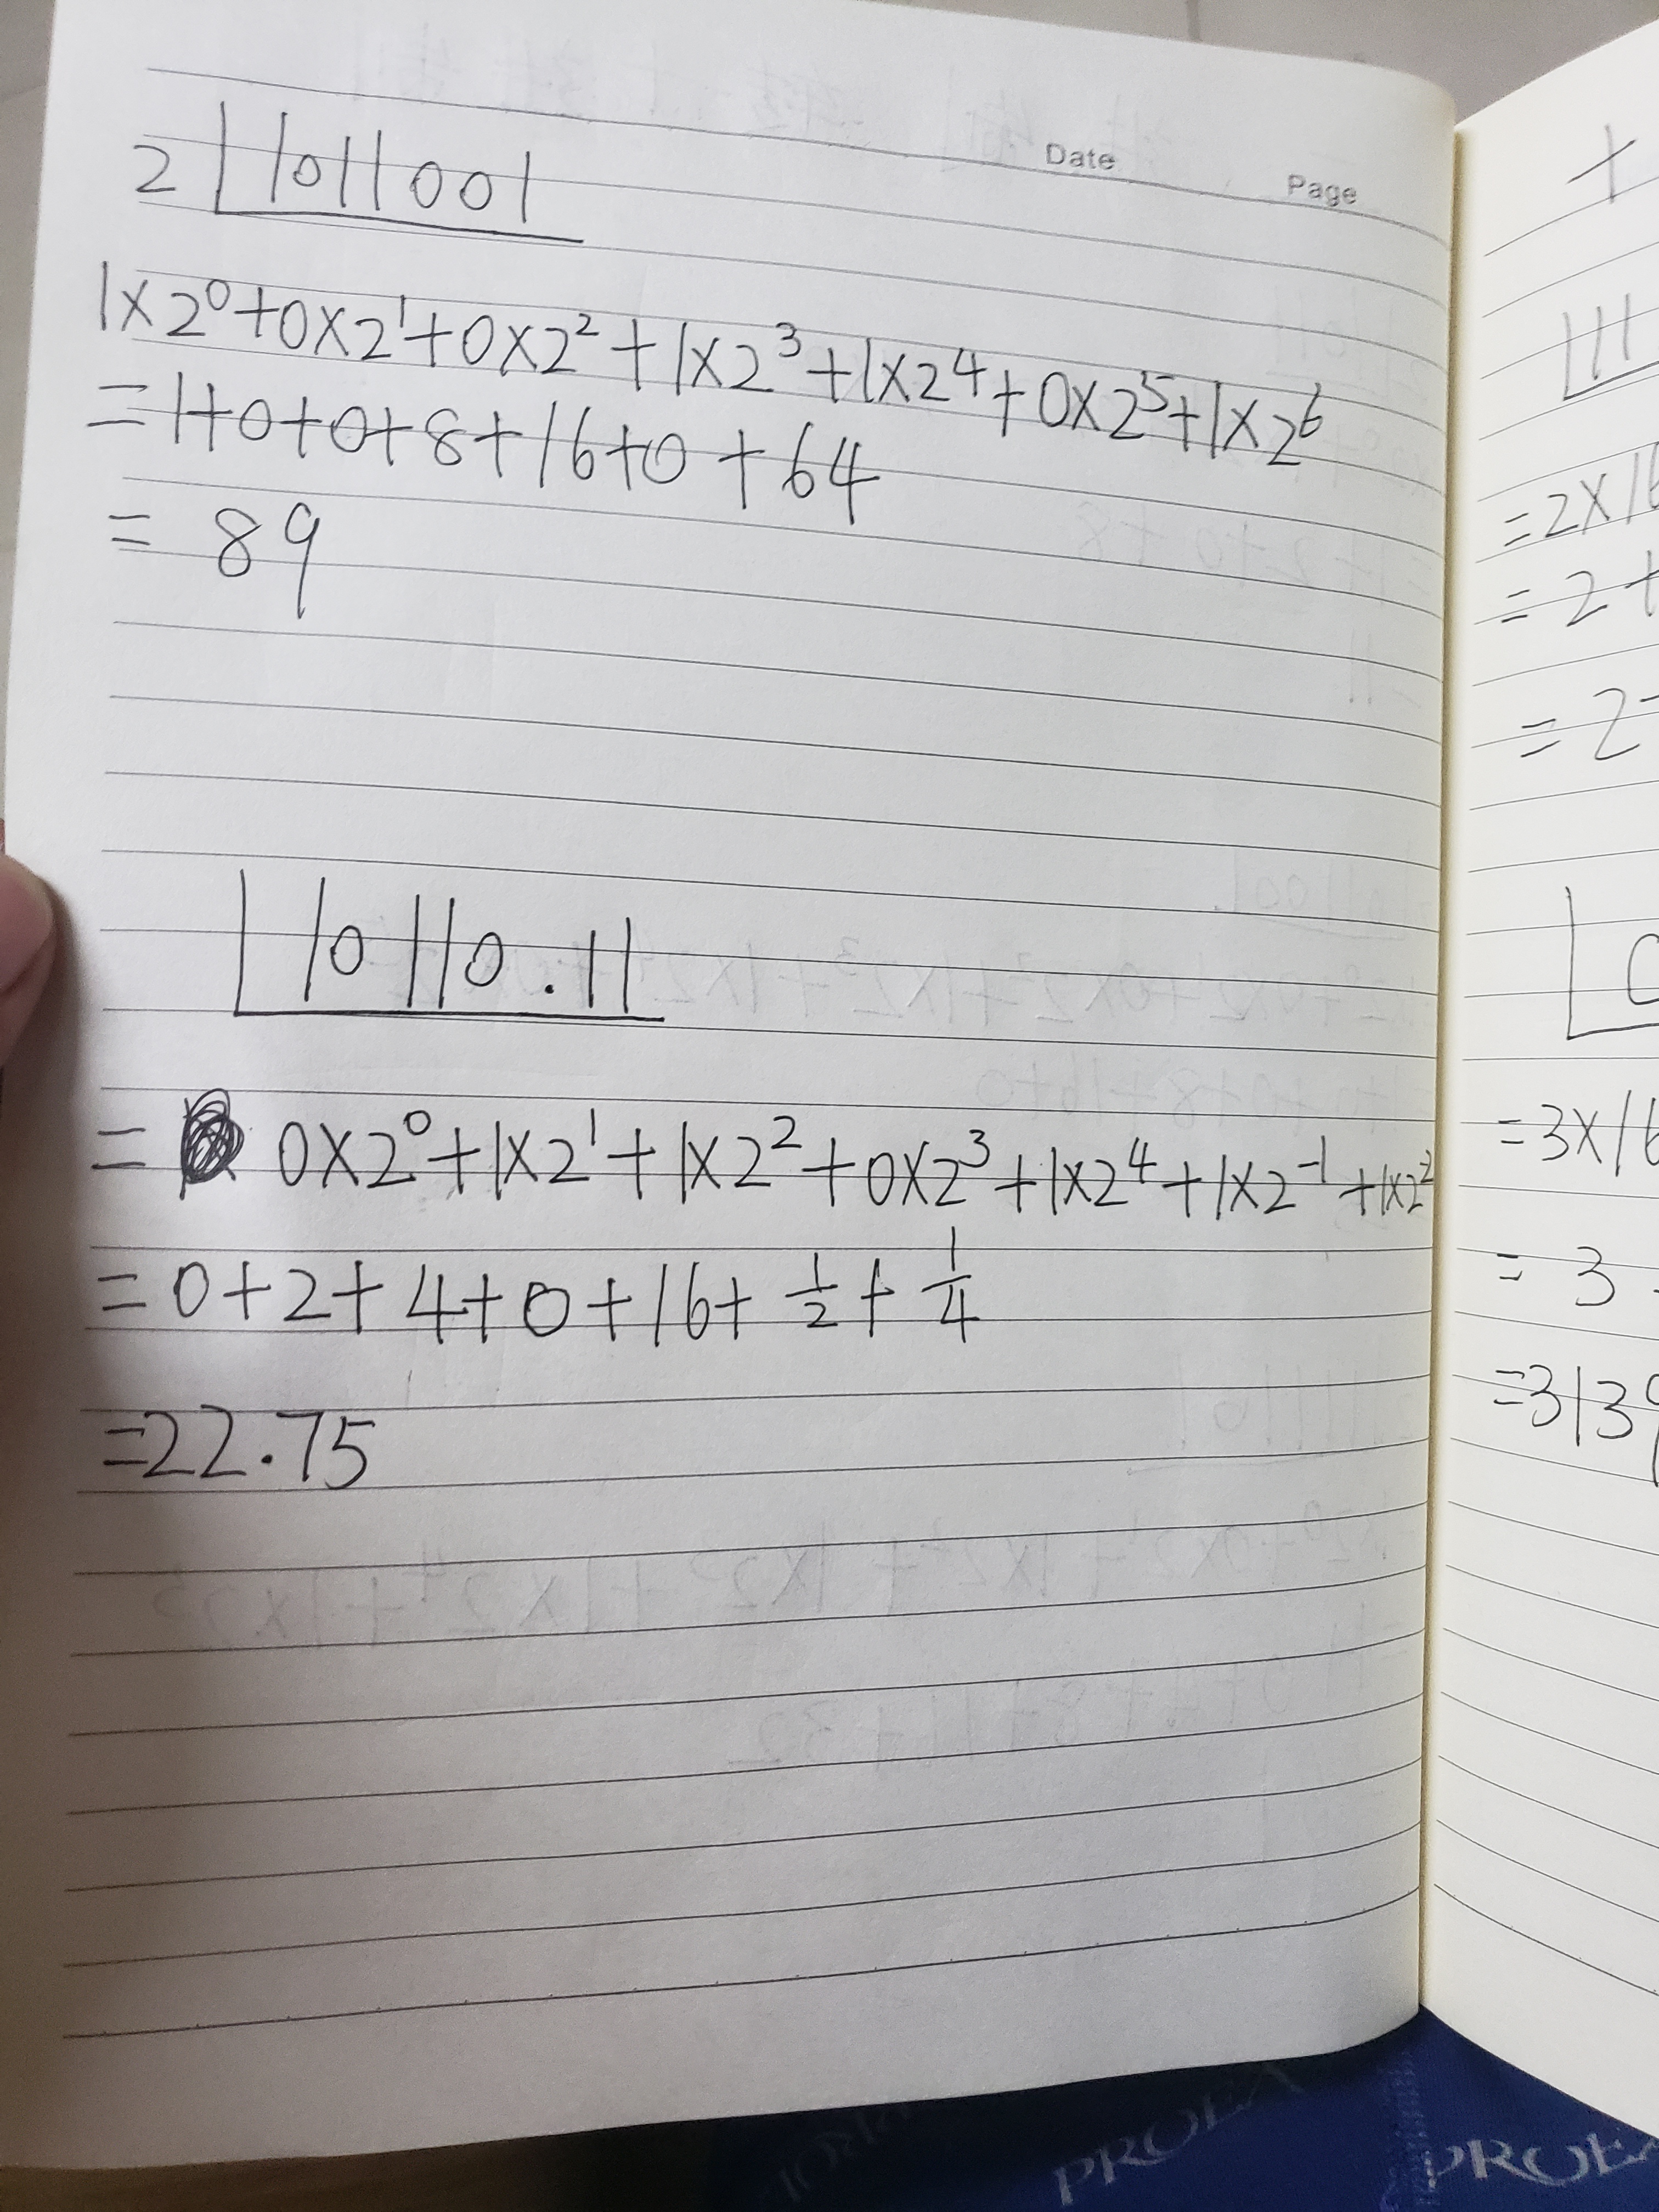 Date
Page
2 1011001
1×2⁰+0×2¹+0×2²+1×2³+1×2⁴+0×2⁵+1×2⁶
=1+0+0+8+16+0+64
= 89
10110.11
= 0×2⁰+1×2¹+1×2²+0×2³+1×2⁴+1×2⁻¹+1×2⁻²
=0+2+4+0+16+1/2+1/4
=22.75
+
111
=2×16
=2+
=2
=3×16
=3
=3139
PROEX
PROEX